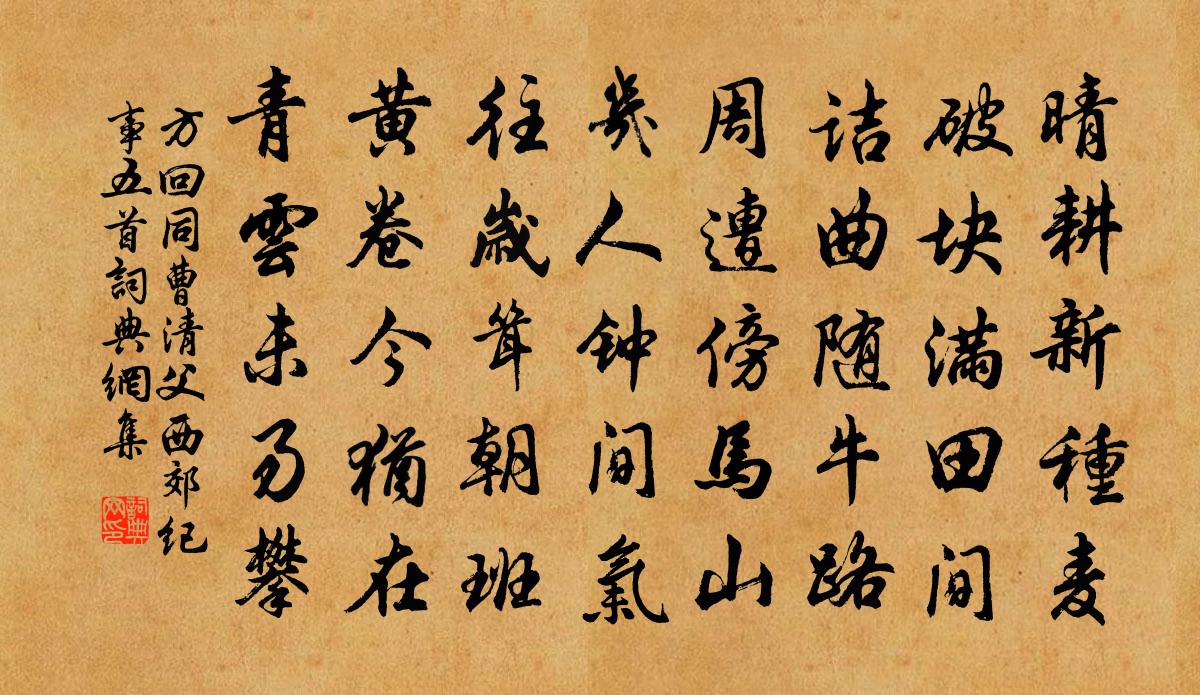 晴耕新種麦
破块满田间
诘曲随牛路
周遭傍馬山
几人钟间氣
往歳耸朝班
黄卷今猶在
青雲未易攀
方回同曹清父西郊纪
事五首詞典網集
詞典
网印